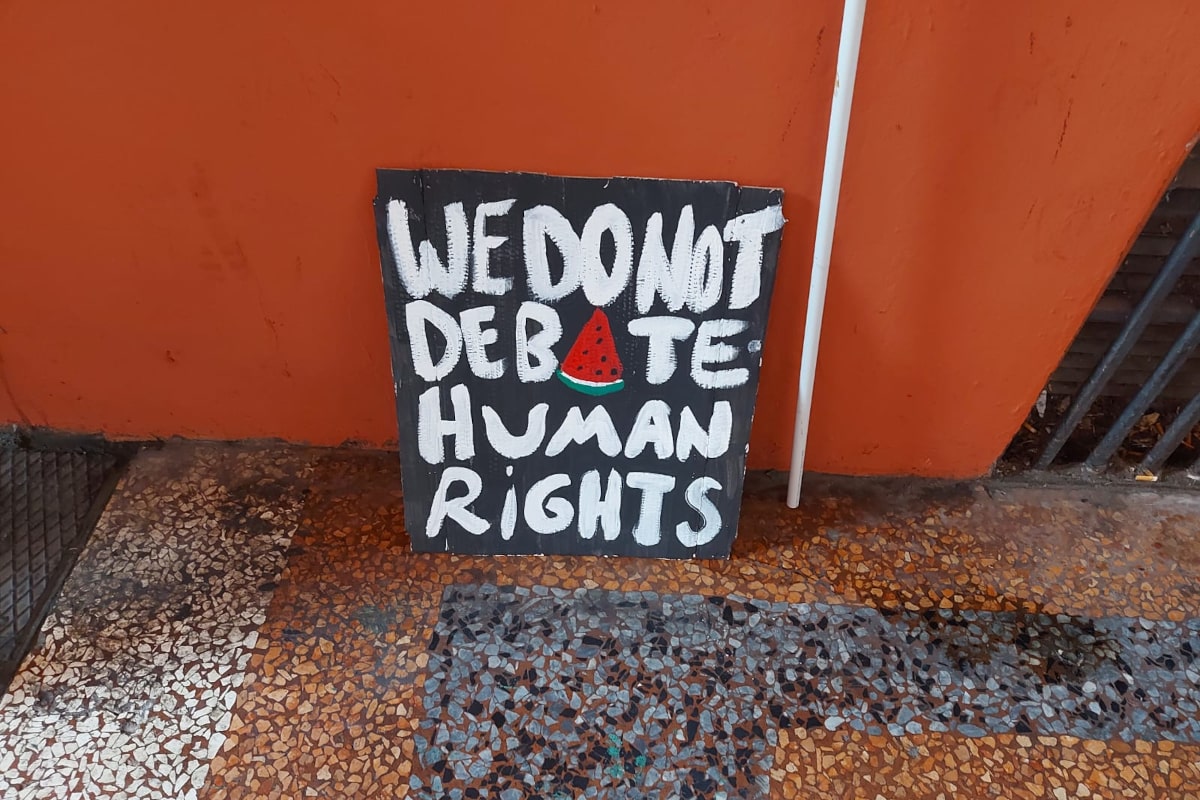 WE DO NOT
DEB🍉TE
HUMAN
RiGHTS